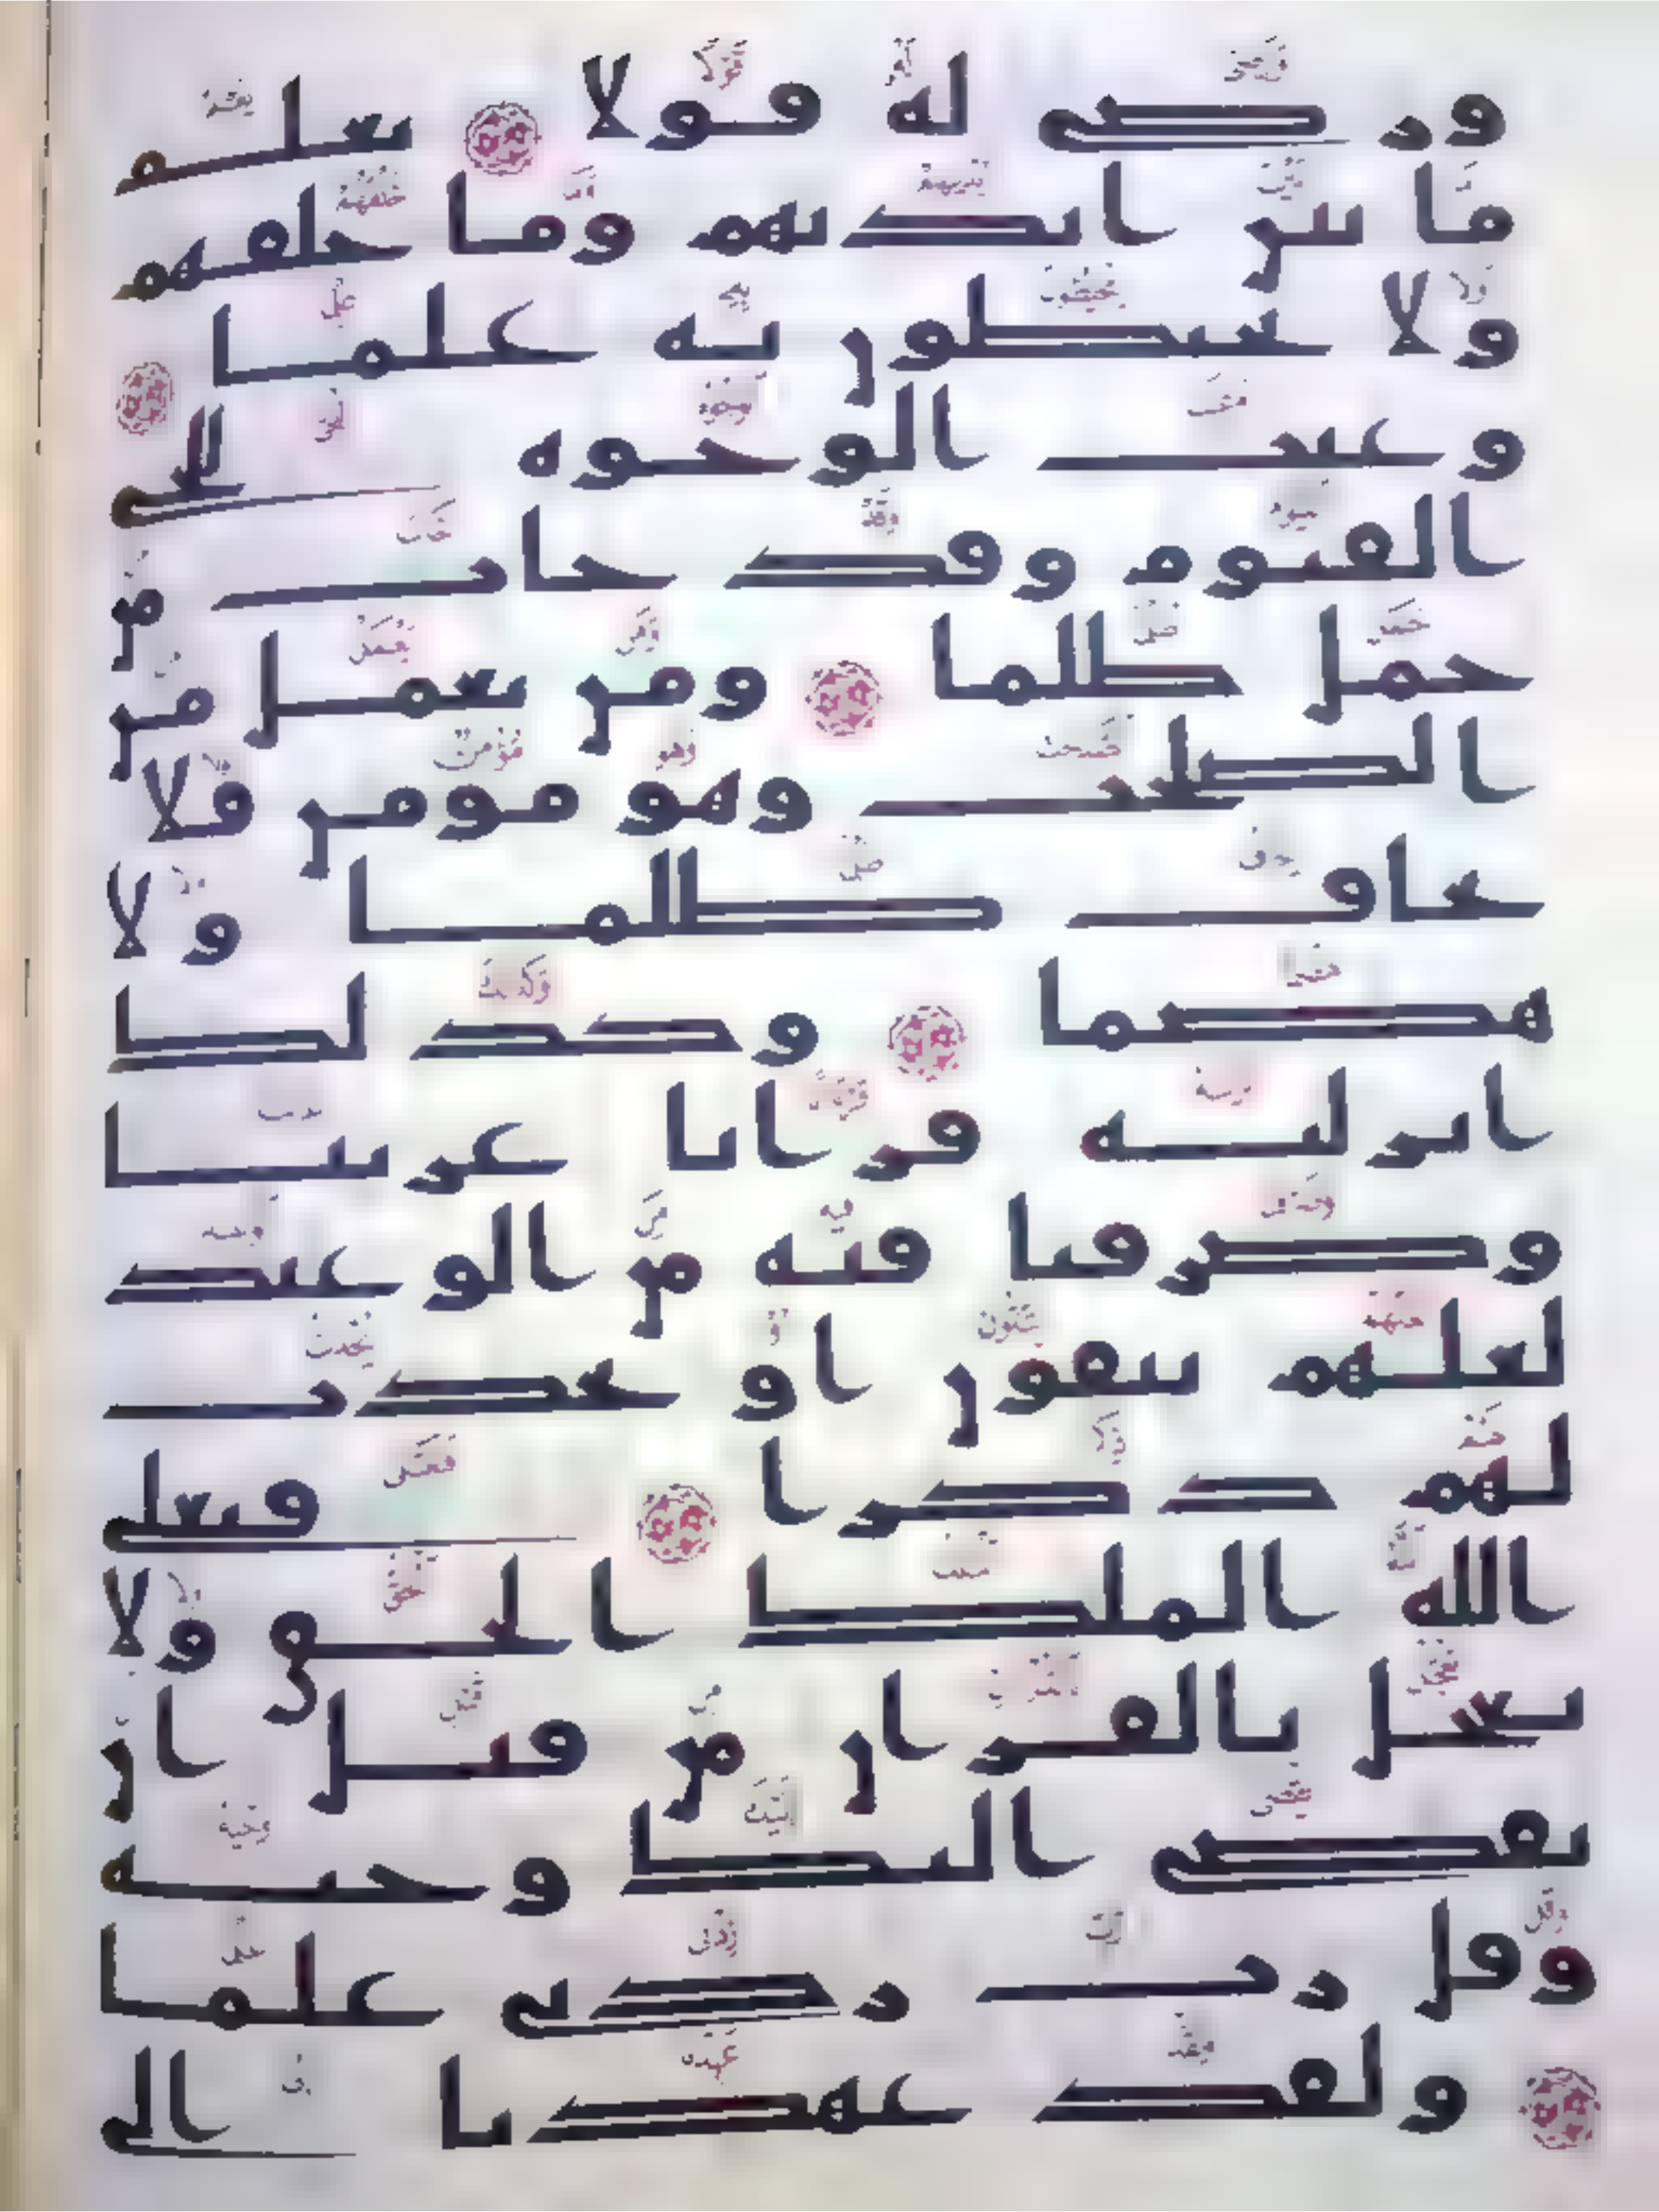 ورضى له قولا يعلم
ما بين ايديهم وما خلفهم
ولا يحيطون به علما
وعنت الوجوه للحى
القيوم وقد خاب من
حمل ظلما ومن يعمل من
الصلحت وهو مومن فلا
يخاف ظلما ولا
هضما وكذلك
انزلنه قرانا عربيا
وصرفنا فيه من الوعيد
لعلهم يتقون او يحدث
لهم ذكرا فتعلى
الله الملك الحق ولا
تعجل بالقران من قبل ان
يقضى اليك وحيه
وقل رب زدنى علما
ولقد عهدنا الى